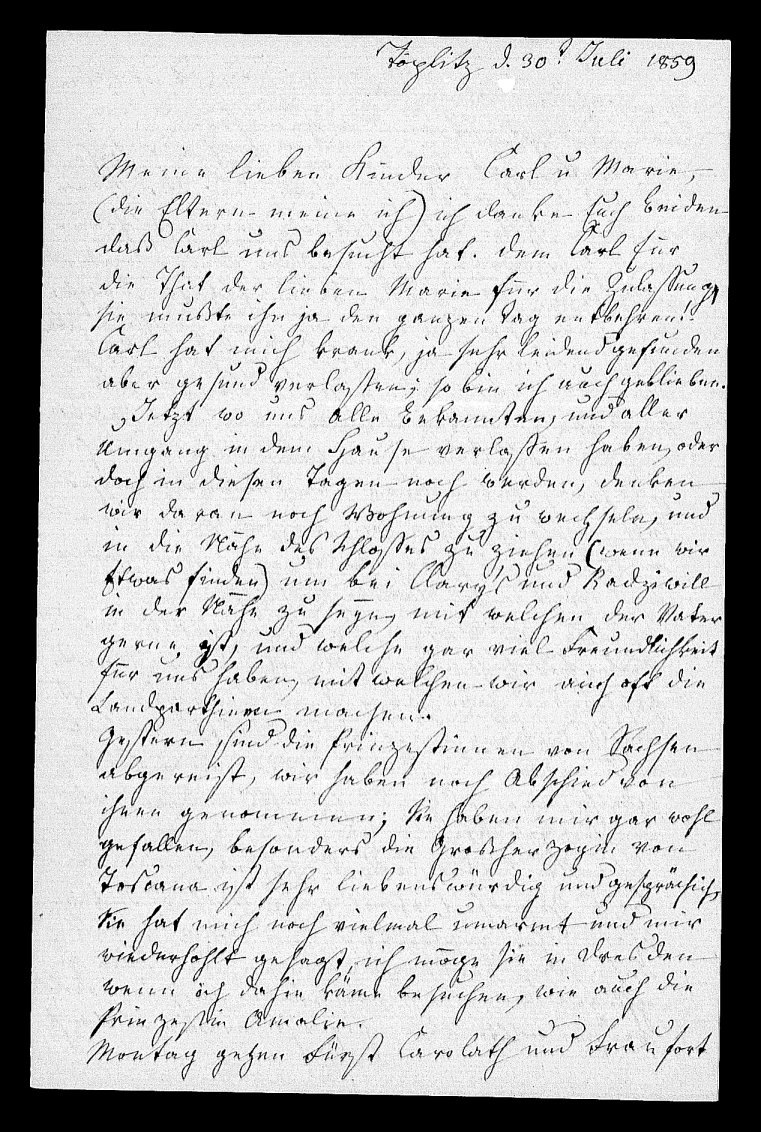 Töplitz d. 30t Juli 1859
Meine lieben Kinder Carl u Marie,
(die Eltern meine ich) ich danke Euch beiden
daß Carl uns besucht hat. dem Carl für
die That der lieben Marie für die Zulaßung,
sie mußte ihn ja den ganzen Tag entbehren.
Carl hat mich krank, ja sehr leidend gefunden
aber gesund verlaßen; so bin ich auch geblieben.
Jetzt wo uns Alle Bekannten, und aller
Umgang in dem Hause verlaßen haben, oder
doch in diesen Tagen noch werden, denken
wir daran noch Wohnung zu wechseln, und
in die Nähe des Schloßes zu ziehen (wenn wir
Etwas finden) um bei Clary's und Radziwill
in der Nähe zu seyn, mit welchen der Vater
gerne ist, und welche gar viel Freundlichkeit
für uns haben, mit welchen wir auch oft die
Landparthieen machen.
Gestern sind die Prinzeßinnen von Sachsen
abgereist, wir haben noch Abschied von
ihnen genommen; Sie haben mir gar wohl
gefallen, besonders die Großherzogin von
Toscana ist sehr liebenswürdig und gesprächich,
Sie hat mich noch vielmal umarmt und mir
wiederhohlt gesagt, ich möge sie in Dresden
wenn ich dahin käme besuchen, wie auch die
Prinzeßin Amalie.
Montag gehen Fürst Carolath und Frau fort